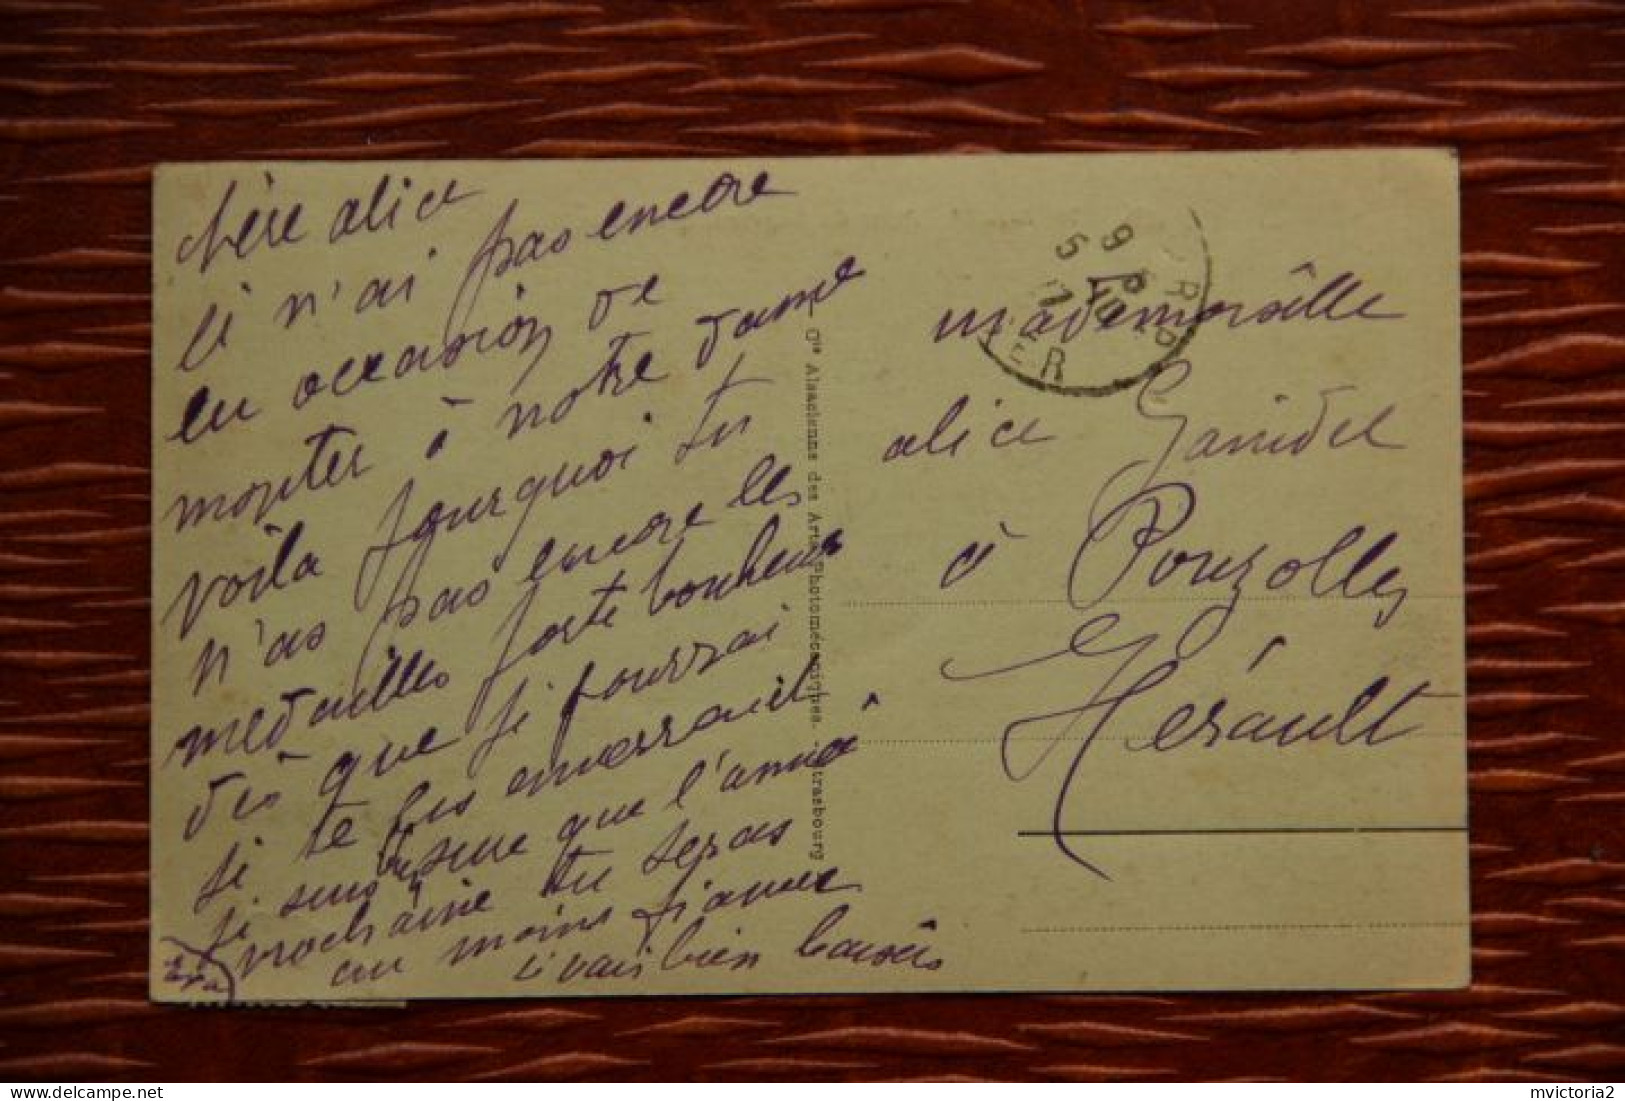 chère alice
je n'ai pas encore
eu occasion de
monter à notre dame
voila pourquoi tu
n'as pas encore les
medailles porte bonheur
dès que je pourrai
je te les enverrai
je suis sure que l'année
prochaine tu seras
au moins fiancée
je vais bien baisers
Cie Alsacienne des Arts Photomécaniques. Strasbourg
9
5
mademoiselle
alice Garidel
à Pouzolles
Hérault
mvictoria2